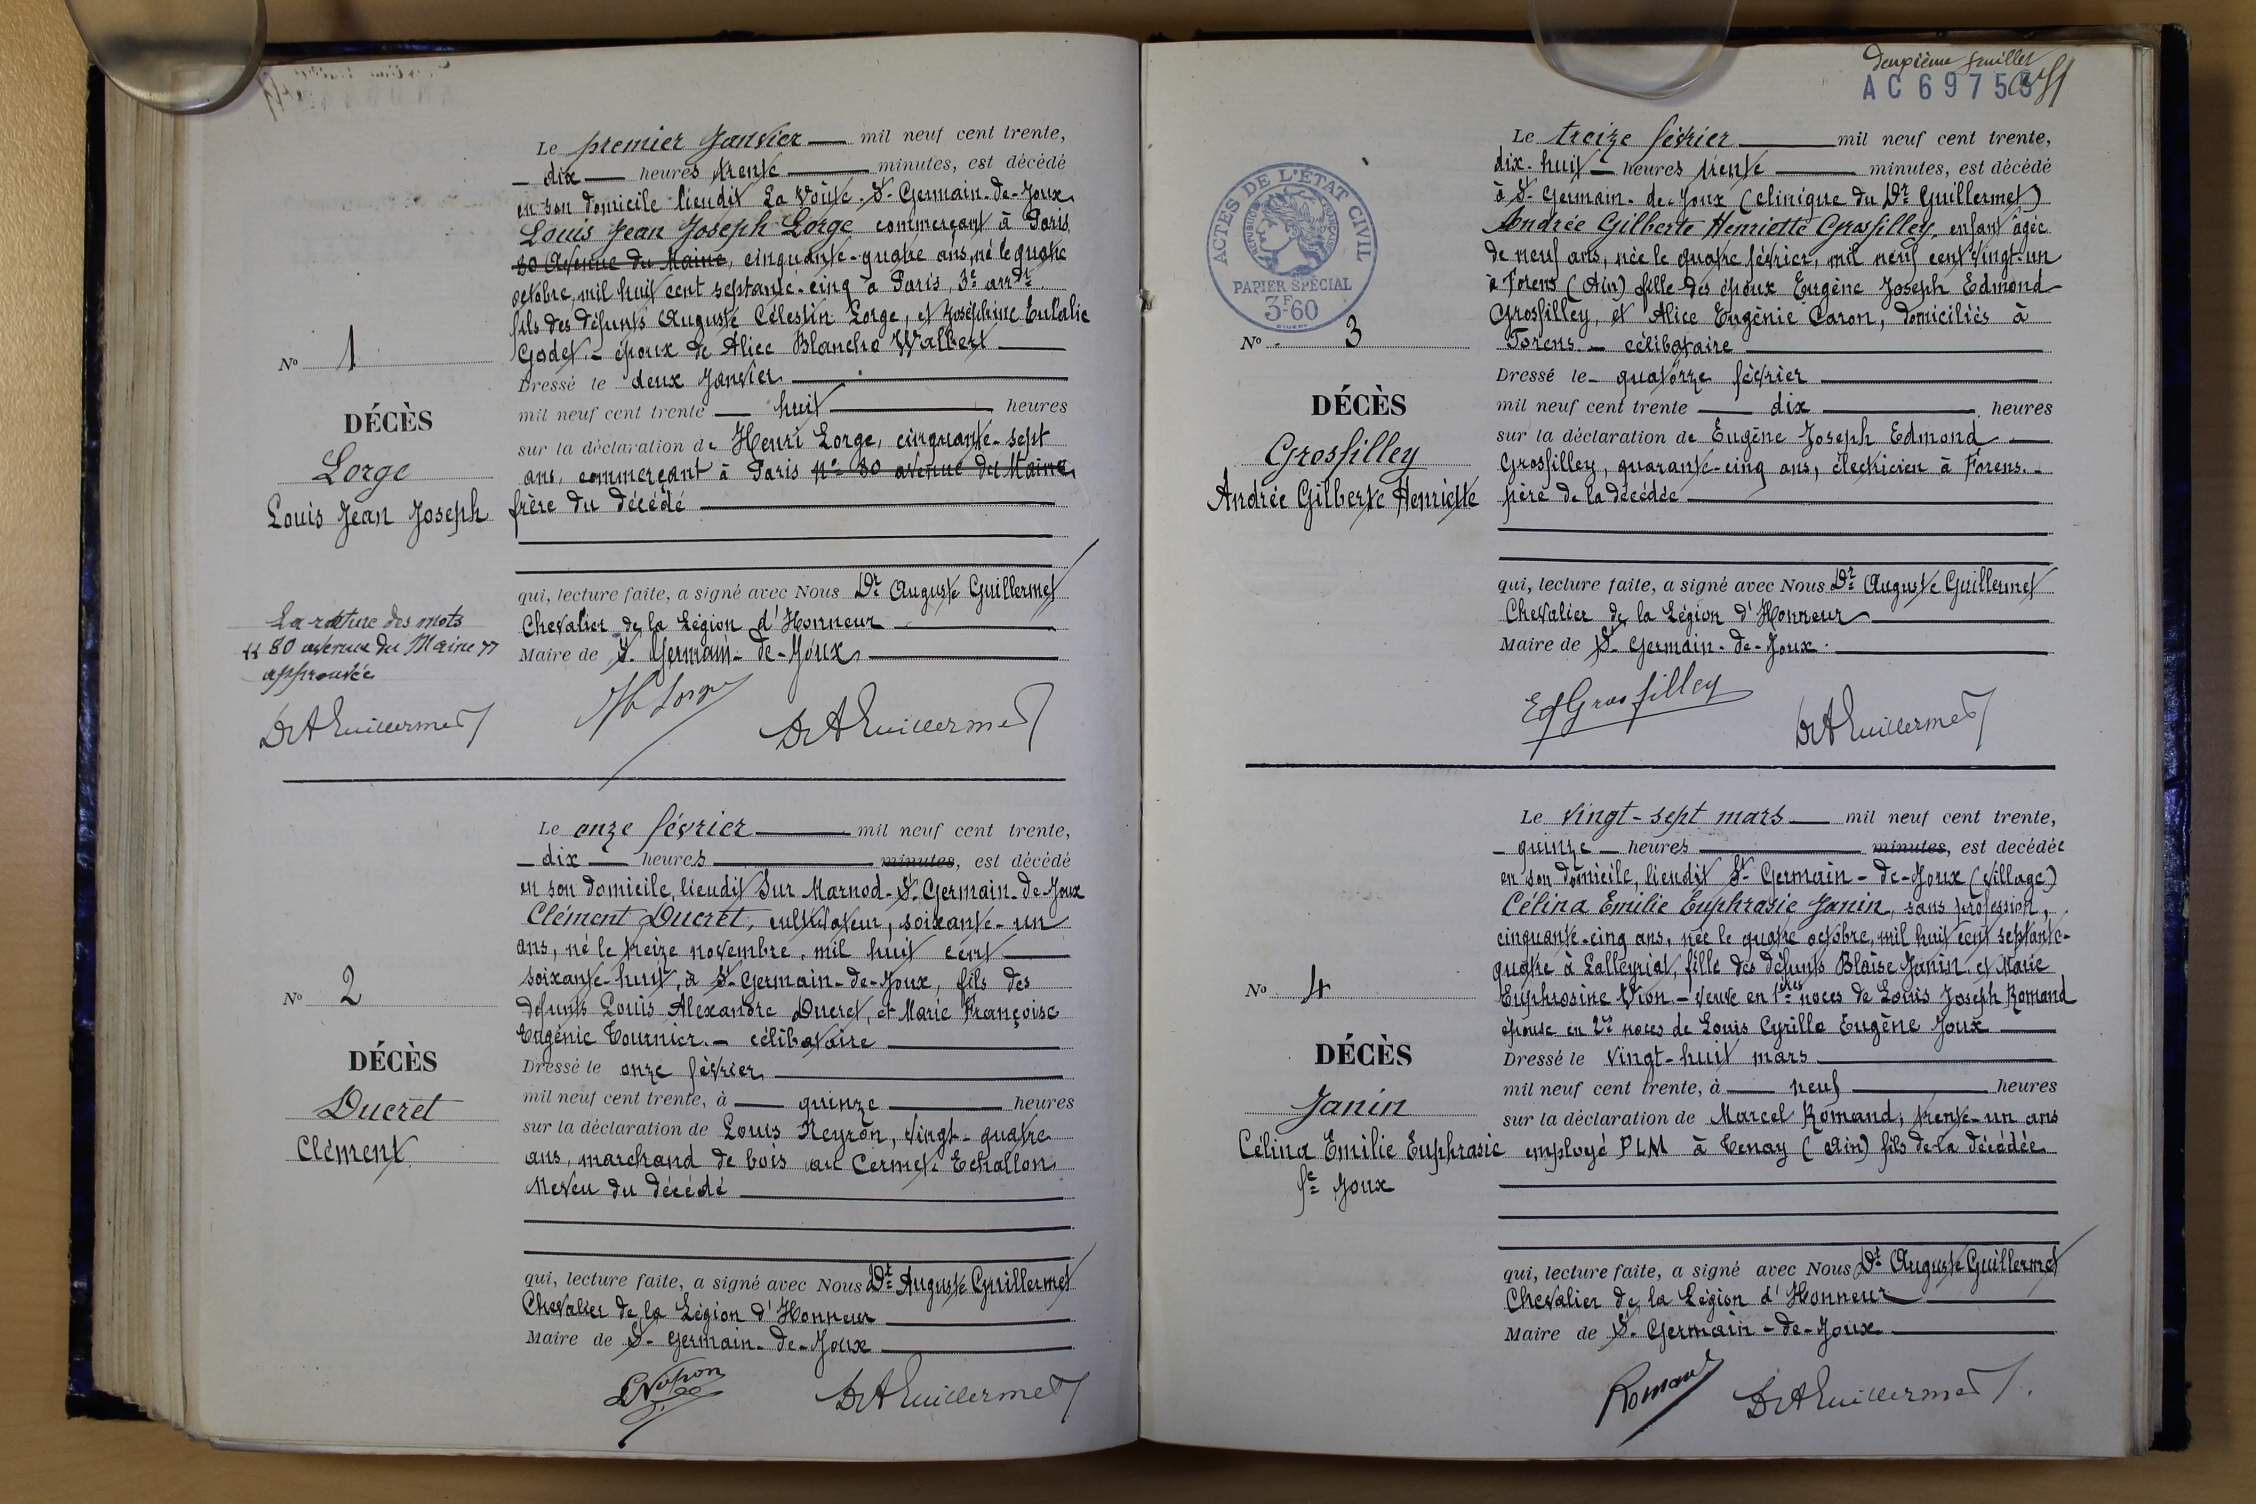 Le premier Janvier mil neuf cent trente,
dix heures trente minutes, est décédé
en son domicile lieudit La Voûte. St. Germain-de-Joux
Louis Jean Joseph Lorge commerçant à Paris
80 Avenue du Maine, cinquante-quatre ans, né le quatre
octobre, mil huit cent septante-cinq à Paris, 3e arrdt.
fils des défunts Auguste Célestin Lorge, et Joséphine Eulalie
Godet. - époux de Alice Blanche Walbert
Dressé le deux Janvier
mil neuf cent trente huit heures
sur la déclaration de Henri Lorge, cinquante-sept
ans, commerçant à Paris n° 80 avenue du Maine
frère du décédé
qui, lecture faite, a signé avec Nous Dr Auguste Guillermet
Chevalier de la Légion d'Honneur
Maire de St. Germain-de-Joux
No 1
DÉCÈS
Lorge
Louis Jean Joseph
La rature des mots
"80 avenue du Maine"
approuvée
Dr A Guillermet
H Lorge
Dr A Guillermet
Le onze février mil neuf cent trente,
dix heures minutes, est décédé
en son domicile, lieudit Sur Marnod-St. Germain-de-Joux
Clément Ducret, cultivateur, soixante-un
ans, né le treize novembre, mil huit cent
soixante-huit, à St. Germain-de-Joux, fils des
défunts Louis Alexandre Ducret, et Marie Françoise
Eugénie Tournier. - célibataire
Dressé le onze février
mil neuf cent trente, à quinze heures
sur la déclaration de Louis Neyron, vingt-quatre
ans, marchand de bois au Cermet Echallon
Neveu du décédé
qui, lecture faite, a signé avec Nous Dr Auguste Guillermet
Chevalier de la Légion d'Honneur
Maire de St. Germain-de-Joux
No 2
DÉCÈS
Ducret
Clément
Dr A Guillermet
deuxième feuillet
AC 69755
ACTES DE L'ÉTAT CIVIL
RÉPUBLIQUE FRANÇAISE
PAPIER SPÉCIAL
3F60
Le treize février mil neuf cent trente,
dix-huit heures trente minutes, est décédé
à St. Germain-de-Joux (clinique du Dr Guillermet)
Andrée Gilberte Henriette Grosfilley, enfant âgée
de neuf ans, née le quatre février, mil neuf cent vingt-un
à Forens (Ain) fille des époux Eugène Joseph Edmond
Grosfilley, et Alice Eugénie Caron, domiciliés à
Forens. - célibataire
Dressé le quatorze février
mil neuf cent trente dix heures
sur la déclaration de Eugène Joseph Edmond
Grosfilley, quarante-cinq ans, électricien à Forens.-
père de la décédée
qui, lecture faite, a signé avec Nous Dr Auguste Guillermet
Chevalier de la Légion d'Honneur
Maire de St. Germain-de-Joux.
No 3
DÉCÈS
Grosfilley
Andrée Gilberte Henriette
Ed Grosfilley
Dr A Guillermet
Le vingt-sept mars mil neuf cent trente,
quinze heures minutes, est decédée
en son domicile, lieudit St. Germain-de-Joux (village)
Célina Emilie Euphrasie Janin, sans profession,
cinquante-cinq ans, née le quatre octobre, mil huit cent septante-
quatre à Lalleyriat, fille des défunts Blaise Janin et Marie
Euphrosine Vion - veuve en 1ères noces de Louis Joseph Romand
épouse en 2es noces de Louis Cyrille Eugène Joux
Dressé le vingt-huit mars
mil neuf cent trente, à neuf heures
sur la déclaration de Marcel Romand, trente-un ans
employé PLM à Tenay (Ain) fils de la décédée
qui, lecture faite, a signé avec Nous Dr Auguste Guillermet
Chevalier de la Légion d'Honneur
Maire de St. Germain-de-Joux
No 4
DÉCÈS
Janin
Célina Emilie Euphrasie
fe Joux
Romand
Dr A Guillermet